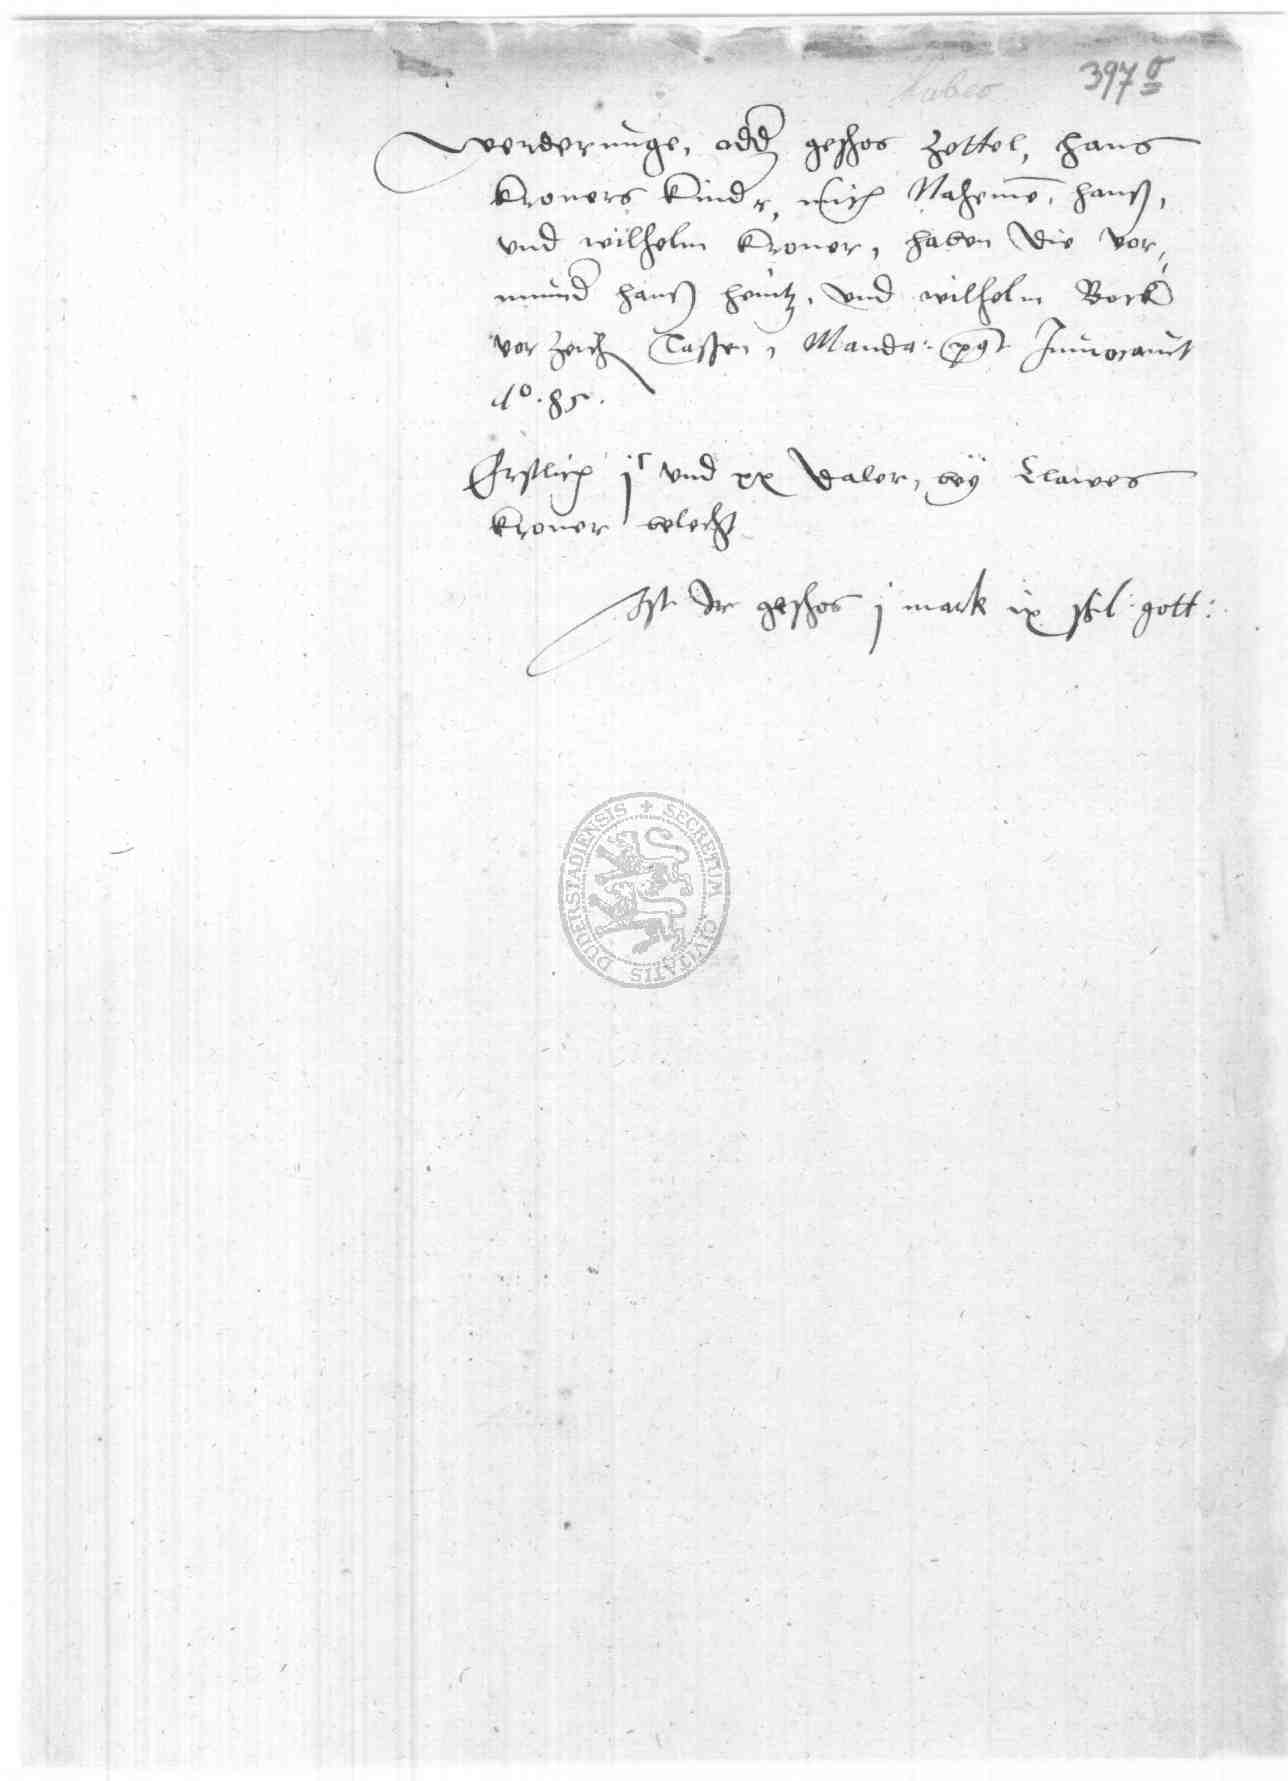 397 v
Werderunge, oder geschos Zettel, Hans
Kroners Kinder, mith Nahemen, Hanß,
vnd wilhelm Kroner, haben die vor,,
munder Hanß Heintz, vnd wilhelm Bock
vorzeich lassen, Manda: post Inuocauit
Ao. 85.
Erstlich jc vnd xx Daler, bey Clawes
Kroner belecht
Ist der geschos j mark ix schl: gott:
SECRETUM CIVITATIS DUDERSTADIENSIS